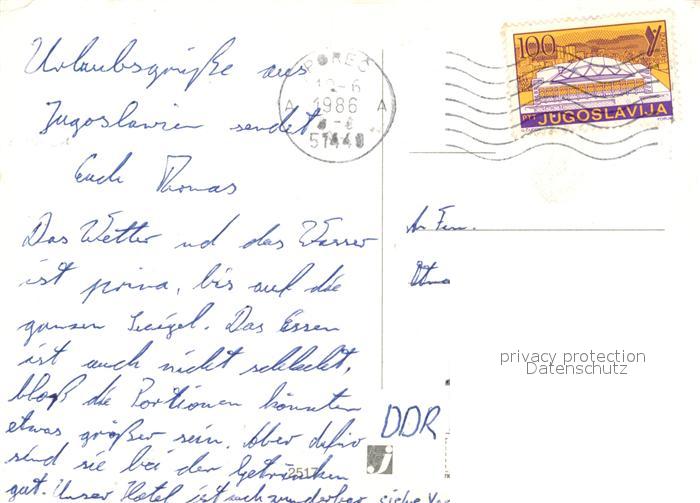 Urlaubsgrüße aus
Jugoslawien sendet
Euch Thomas
Das Wetter und das Wasser
ist prima, bis auf die
ganzen Seeigel. Das Essen
ist auch nicht schlecht,
bloß die Portionen könnten
etwas größer sein. Aber dafür
sind sie bei den Getränken
gut. Unser Hotel ist auch wunderbar
POREČ
1986
A A
51440
100
PTT JUGOSLAVIJA
An Fam.
privacy protection
Datenschutz
DDR
2517